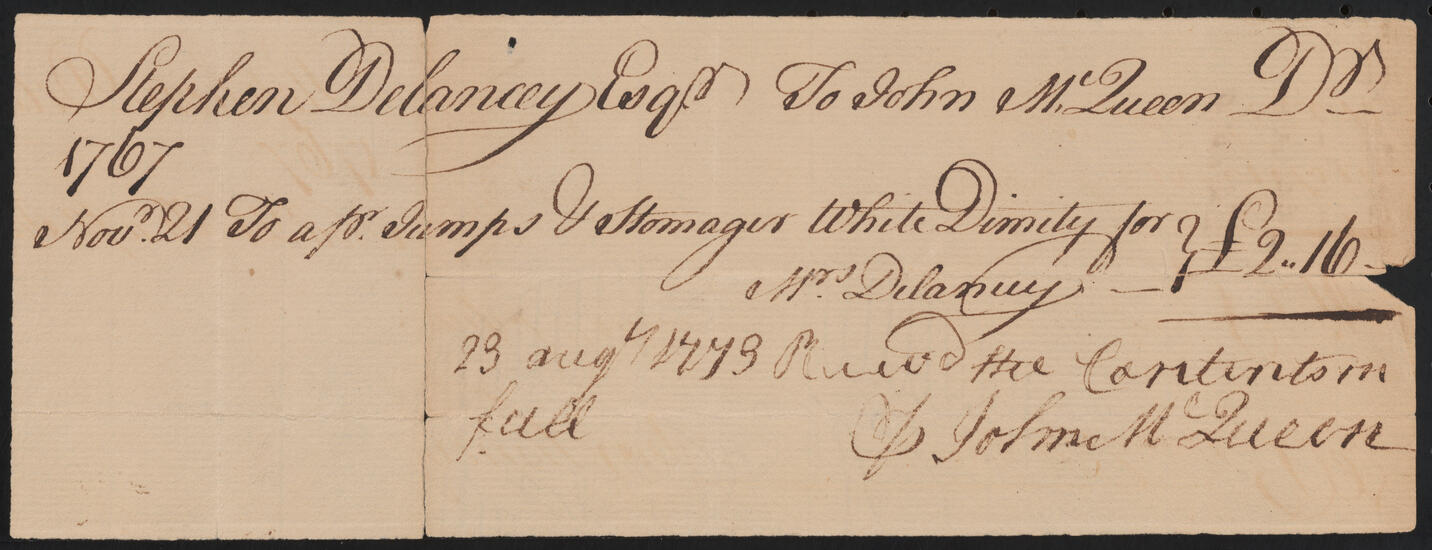 Stephen Delancey Esqr To John McQueen Dr
1767
Novr. 21 To a pr. Jumps & Stomager White Dimity for } £2..16
Mrs Delancey
23 augt 1773 Receivd the Contents in
full
P John McQueen